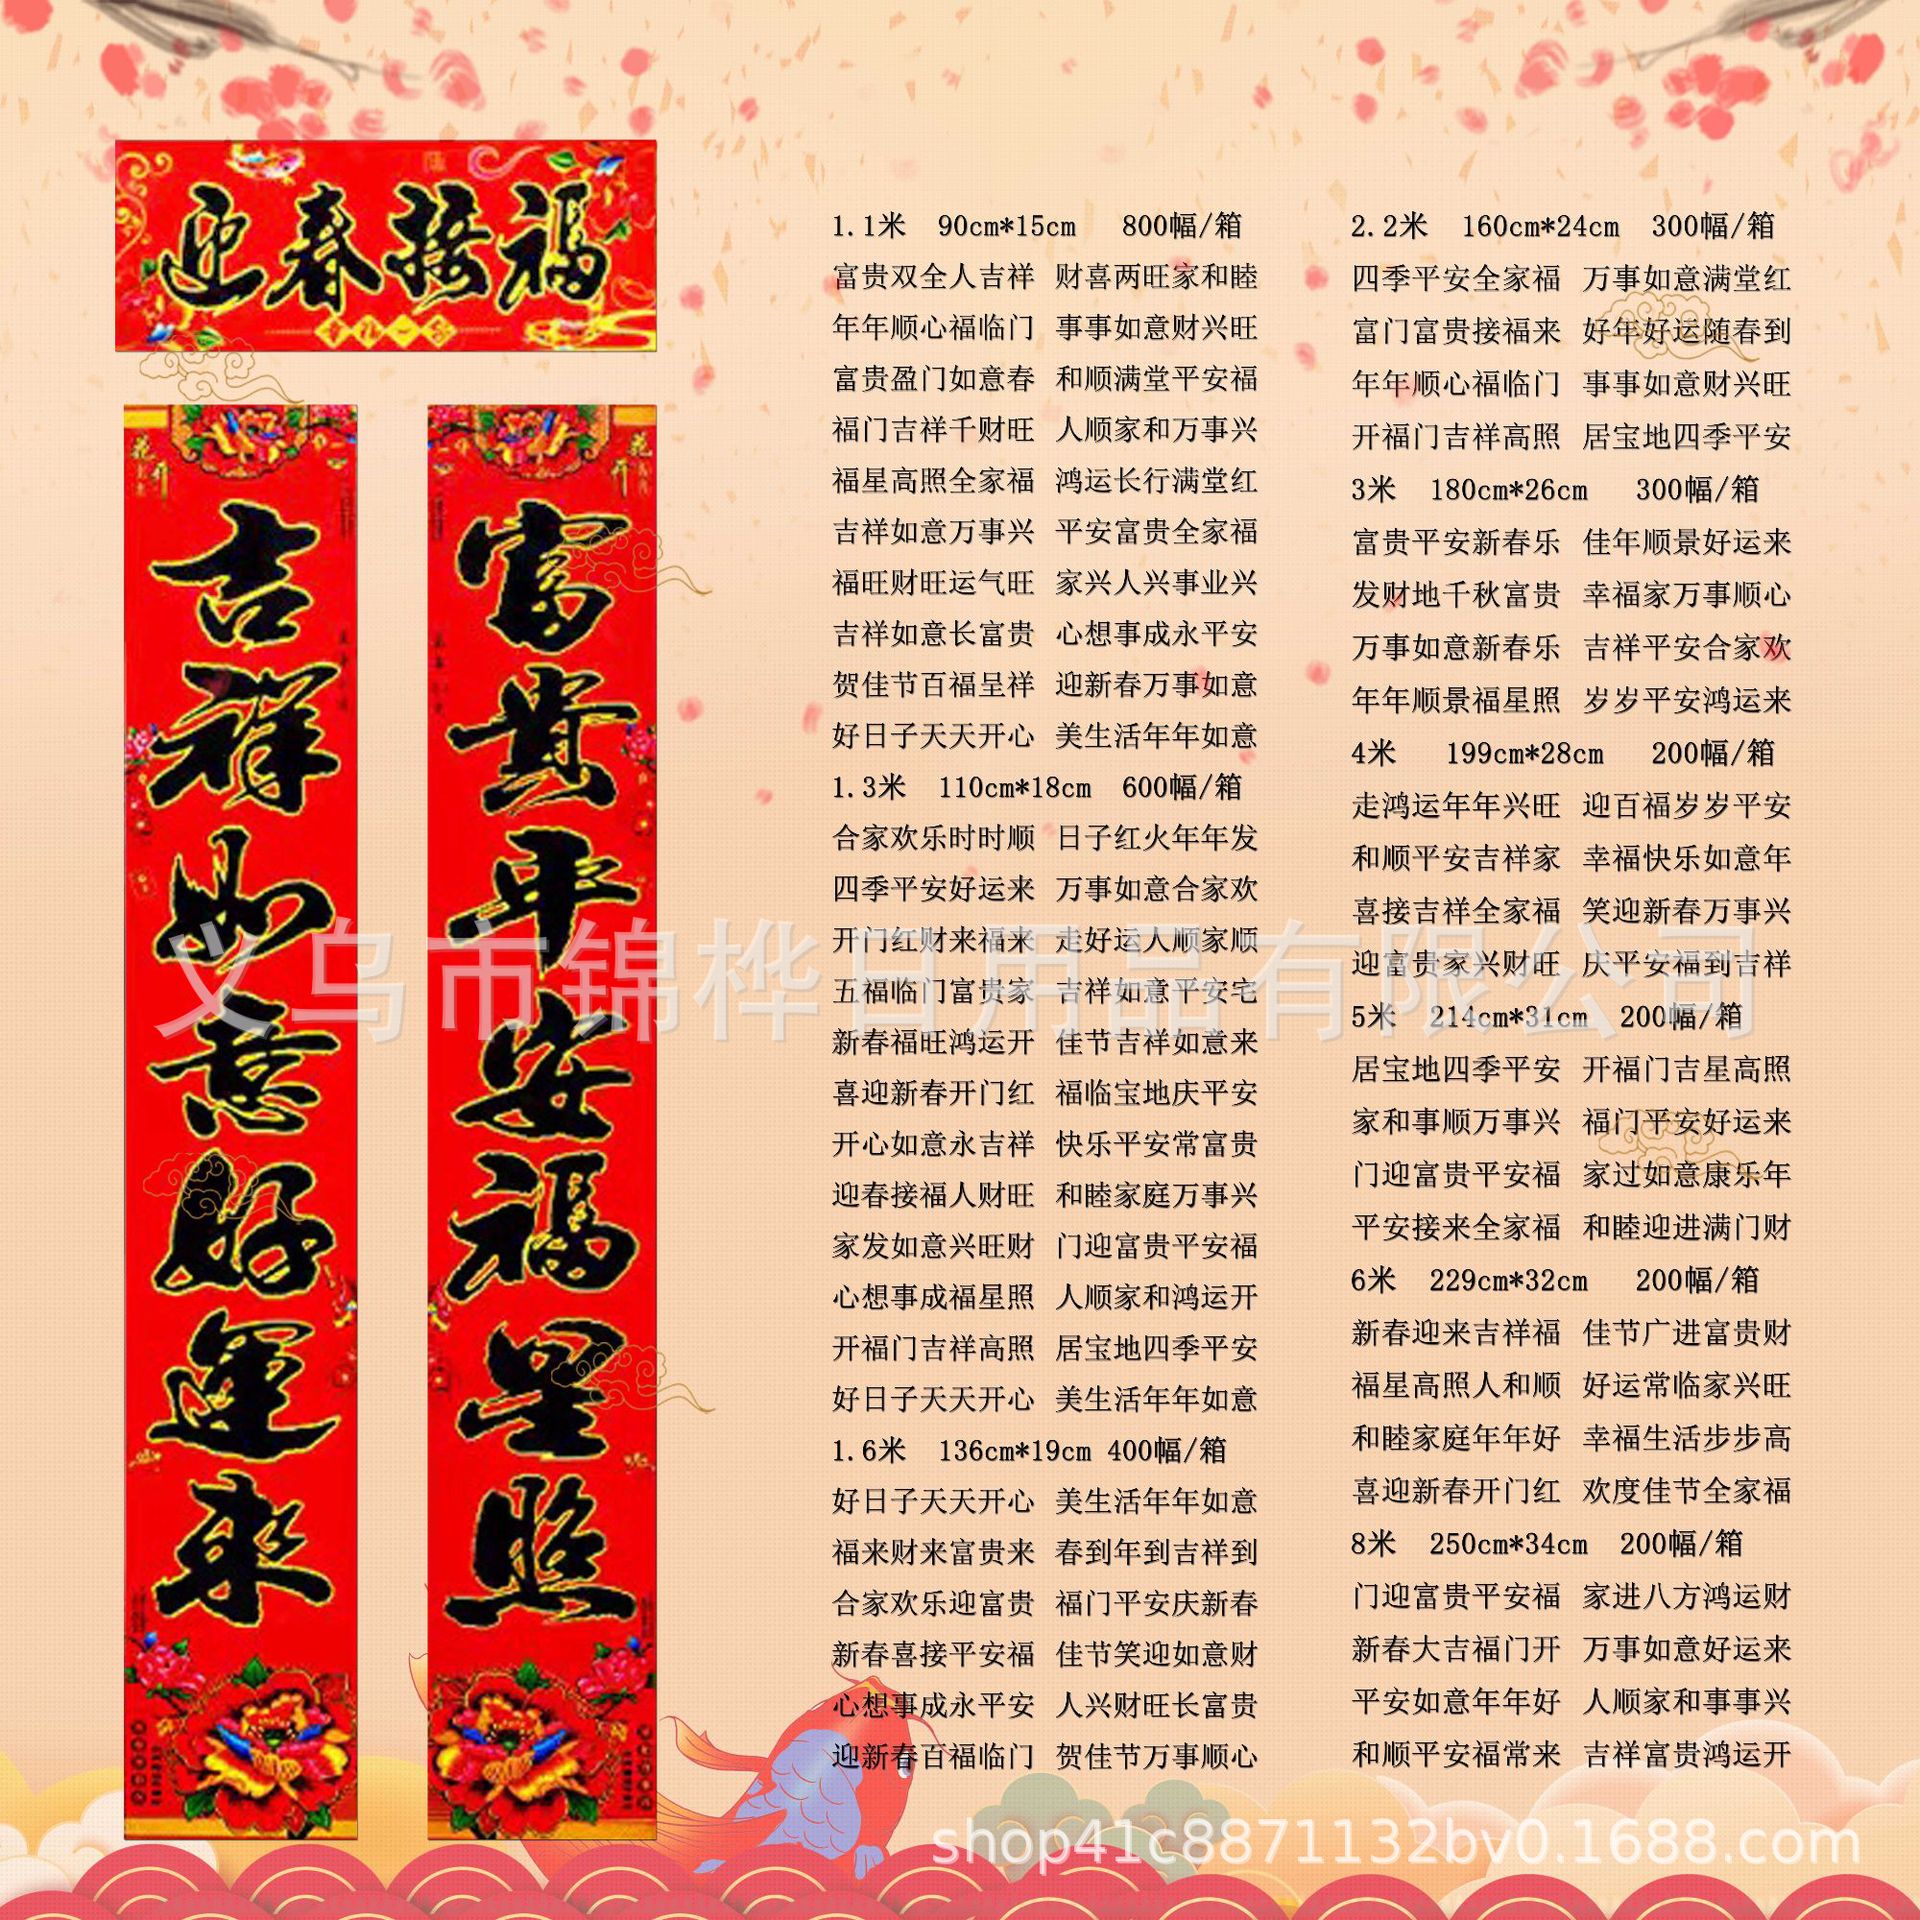 迎春接福
吉祥如意好運來
富贵平安福星照
1.1米 90cm*15cm 800幅/箱
富贵双全人吉祥 财喜两旺家和睦
年年顺心福临门 事事如意财兴旺
富贵盈门如意春 和顺满堂平安福
福门吉祥千财旺 人顺家和万事兴
福星高照全家福 鸿运长行满堂红
吉祥如意万事兴 平安富贵全家福
福旺财旺运气旺 家兴人兴事业兴
吉祥如意长富贵 心想事成永平安
贺佳节百福呈祥 迎新春万事如意
好日子天天开心 美生活年年如意
1.3米 110cm*18cm 600幅/箱
合家欢乐时时顺 日子红火年年发
四季平安好运来 万事如意合家欢
开门红财来福来 走好运人顺家顺
五福临门富贵家 吉祥如意平安宅
新春福旺鸿运开 佳节吉祥如意来
喜迎新春开门红 福临宝地庆平安
开心如意永吉祥 快乐平安常富贵
迎春接福人财旺 和睦家庭万事兴
家发如意兴旺财 门迎富贵平安福
心想事成福星照 人顺家和鸿运开
开福门吉祥高照 居宝地四季平安
好日子天天开心 美生活年年如意
1.6米 136cm*19cm 400幅/箱
好日子天天开心 美生活年年如意
福来财来富贵来 春到年到吉祥到
合家欢乐迎富贵 福门平安庆新春
新春喜接平安福 佳节笑迎如意财
心想事成永平安 人兴财旺长富贵
迎新春百福临门 贺佳节万事顺心
2.2米 160cm*24cm 300幅/箱
四季平安全家福 万事如意满堂红
富门富贵接福来 好年好运随春到
年年顺心福临门 事事如意财兴旺
开福门吉祥高照 居宝地四季平安
3米 180cm*26cm 300幅/箱
富贵平安新春乐 佳年顺景好运来
发财地千秋富贵 幸福家万事顺心
万事如意新春乐 吉祥平安合家欢
年年顺景福星照 岁岁平安鸿运来
4米 199cm*28cm 200幅/箱
走鸿运年年兴旺 迎百福岁岁平安
和顺平安吉祥家 幸福快乐如意年
喜接吉祥全家福 笑迎新春万事兴
迎富贵家兴财旺 庆平安福到吉祥
5米 214cm*31cm 200幅/箱
居宝地四季平安 开福门吉星高照
家和事顺万事兴 福门平安好运来
门迎富贵平安福 家过如意康乐年
平安接来全家福 和睦迎进满门财
6米 229cm*32cm 200幅/箱
新春迎来吉祥福 佳节广进富贵财
福星高照人和顺 好运常临家兴旺
和睦家庭年年好 幸福生活步步高
喜迎新春开门红 欢度佳节全家福
8米 250cm*34cm 200幅/箱
门迎富贵平安福 家进八方鸿运财
新春大吉福门开 万事如意好运来
平安如意年年好 人顺家和事事兴
和顺平安福常来 吉祥富贵鸿运开
义乌市锦桦日用品有限公司
shop41c8871132bv0.1688.com